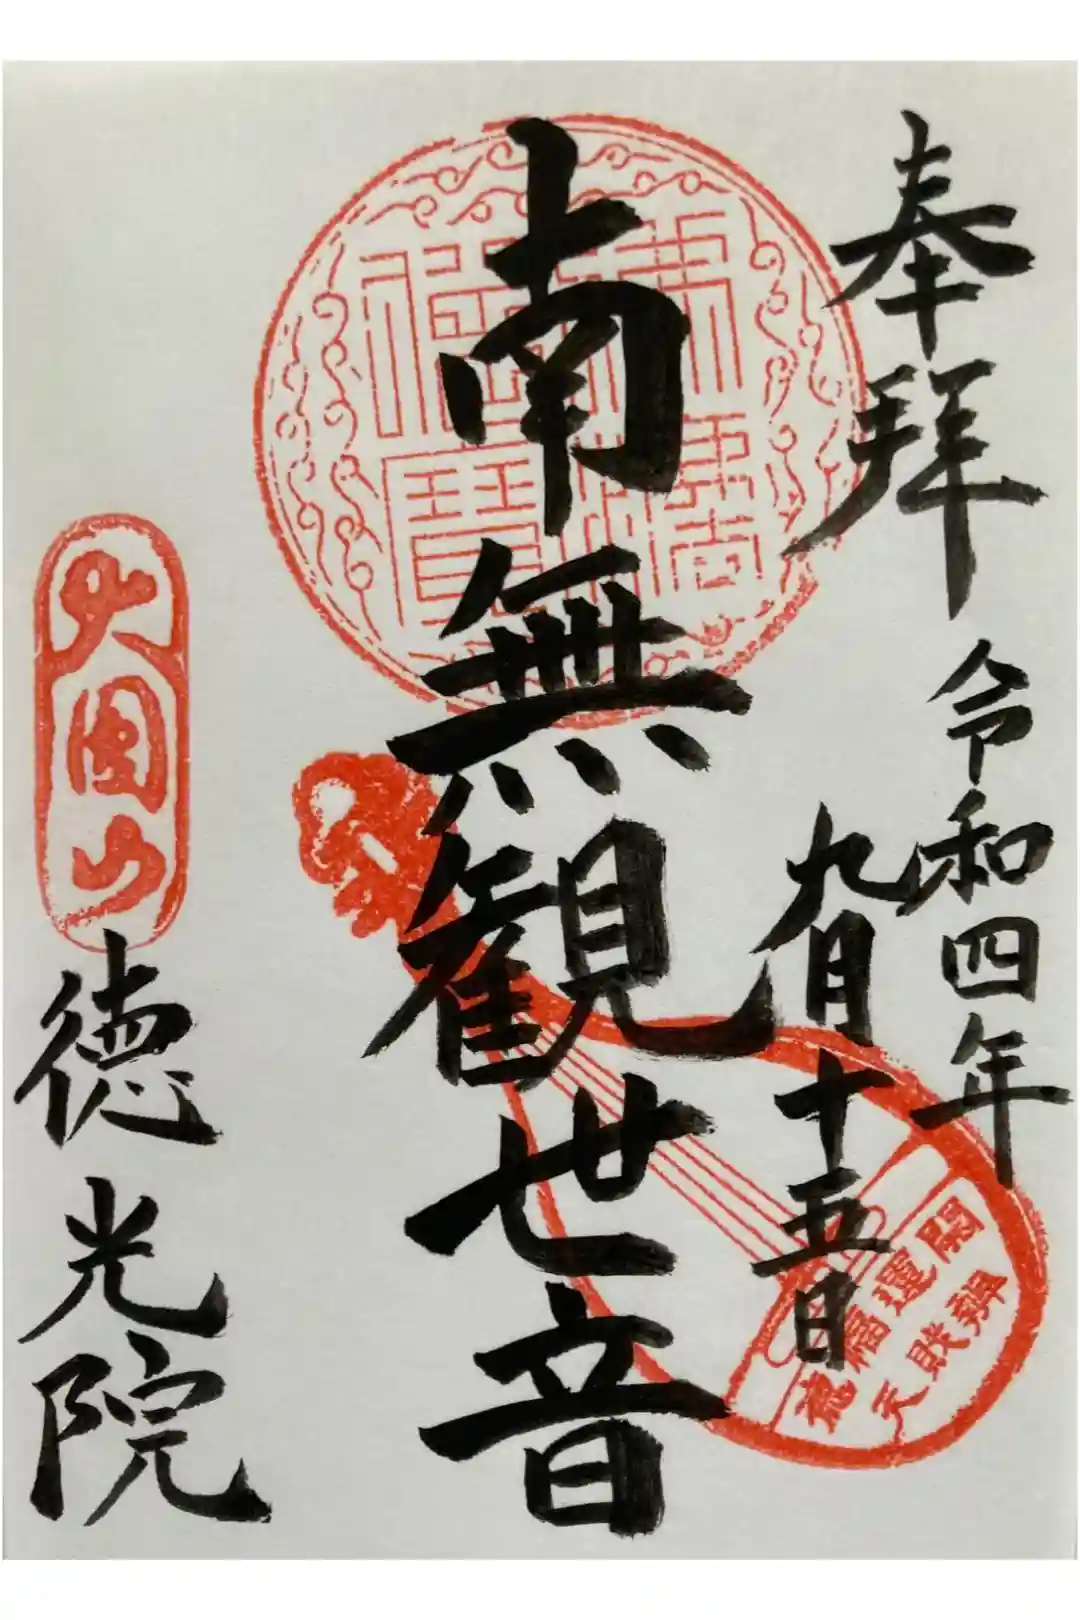 奉拝
令和四年
九月十五日
南無観世音
大圓山
徳光院
開運
辨財天